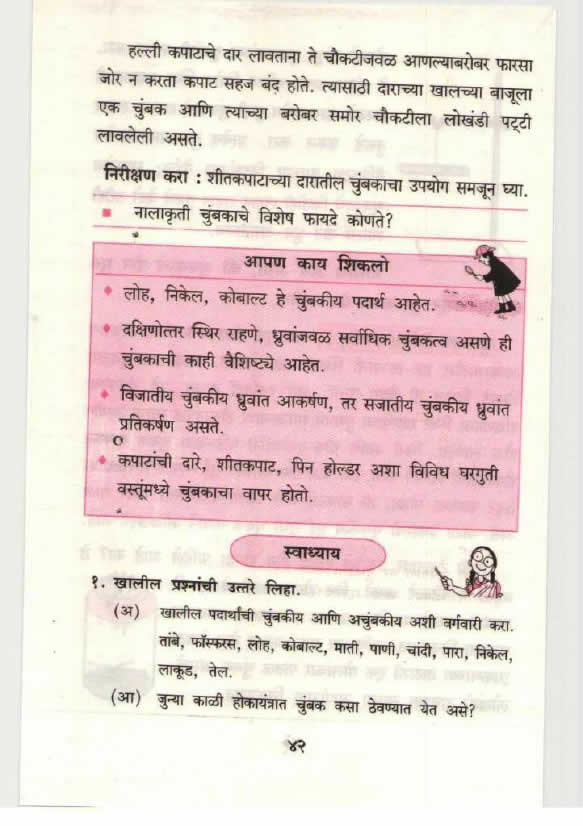 हल्ली कपाटाचे दार लावताना ते चौकटीजवळ आणल्याबरोबर फारसा
जोर न करता कपाट सहज बंद होते. त्यासाठी दाराच्या खालच्या बाजूला
एक चुंबक आणि त्याच्या बरोबर समोर चौकटीला लोखंडी पट्टी
लावलेली असते.
निरीक्षण करा : शीतकपाटाच्या दारातील चुंबकाचा उपयोग समजून घ्या.
नालाकृती चुंबकाचे विशेष फायदे कोणते?
आपण काय शिकलो
लोह, निकेल, कोबाल्ट हे चुंबकीय पदार्थ आहेत.
दक्षिणोत्तर स्थिर राहणे, ध्रुवांजवळ सर्वाधिक चुंबकत्व असणे ही
चुंबकाची काही वैशिष्ट्ये आहेत.
विजातीय चुंबकीय ध्रुवांत आकर्षण, तर सजातीय चुंबकीय ध्रुवांत
प्रतिकर्षण असते.
कपाटांची दारे, शीतकपाट, पिन होल्डर अशा विविध घरगुती
वस्तूंमध्ये चुंबकाचा वापर होतो.
स्वाध्याय
१. खालील प्रश्नांची उत्तरे लिहा.
(अ) खालील पदार्थांची चुंबकीय आणि अचुंबकीय अशी वर्गवारी करा.
तांबे, फॉस्फरस, लोह, कोबाल्ट, माती, पाणी, चांदी, पारा, निकेल,
लाकूड, तेल.
(आ) जुन्या काळी होकायंत्रात चुंबक कसा ठेवण्यात येत असे?
४२